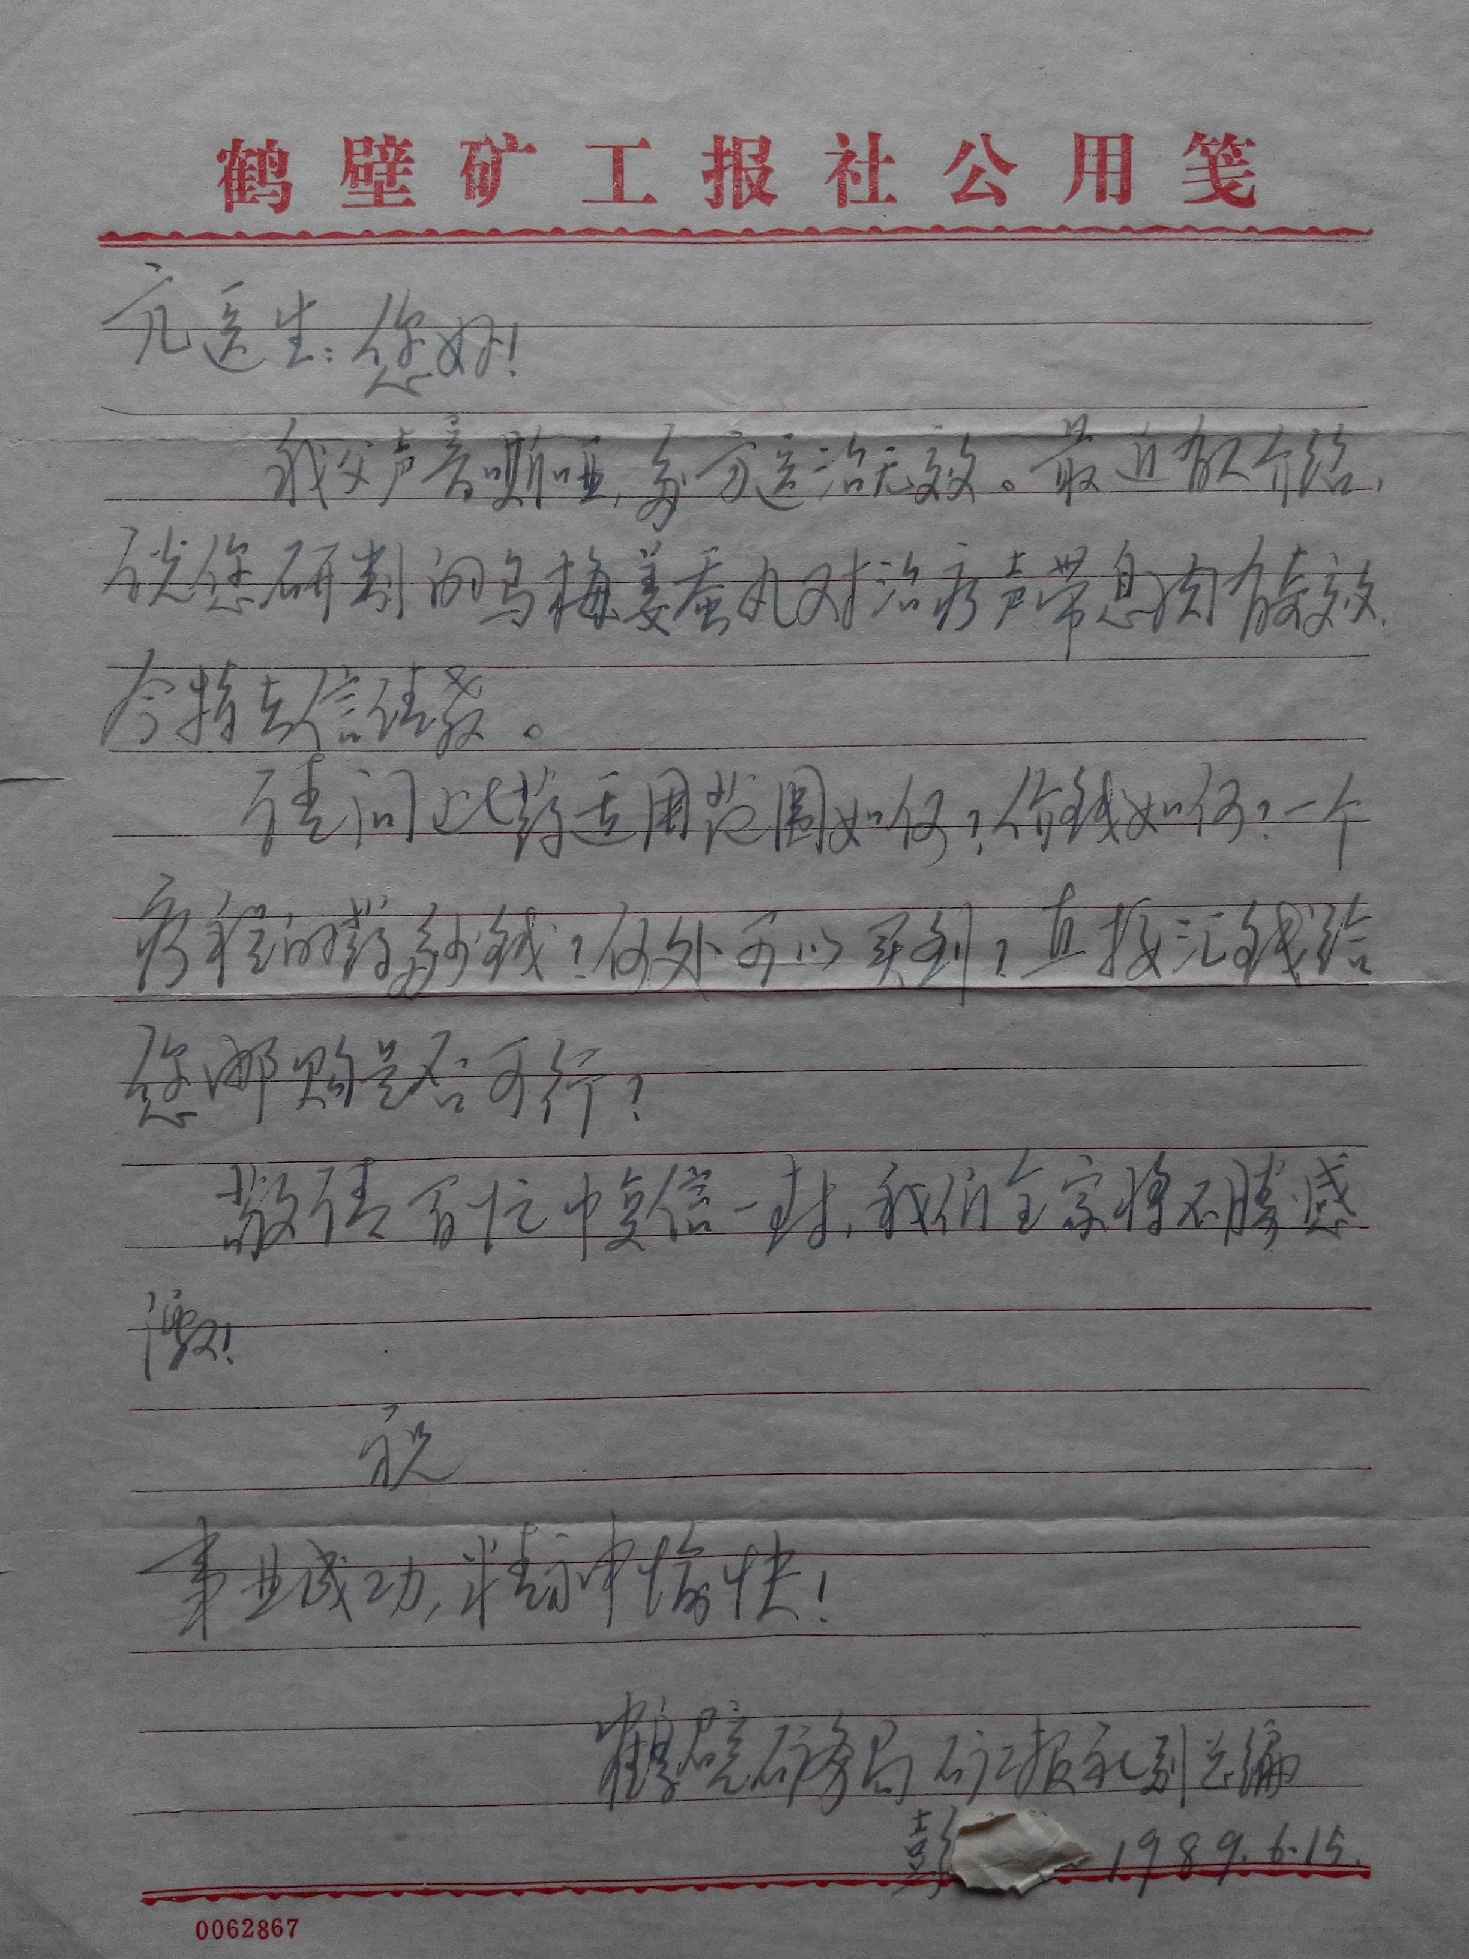 鹤壁矿工报社公用笺
亢医生:您好!
我父声音嘶哑,多方医治无效。最近有人介绍,
说您研制的乌梅姜蚕丸对治疗声带息肉有奇效,
今特去信请教。
请问此药适用范围如何?价钱如何?一个
疗程的药多少钱?何处可以买到?直接汇钱给
您邮购是否可行?
敬请百忙中复信一封,我们全家将不胜感
激!
祝
事业成功,精神愉快!
鹤壁矿务局矿工报社副总编
彭 1989.6.15.
0062867